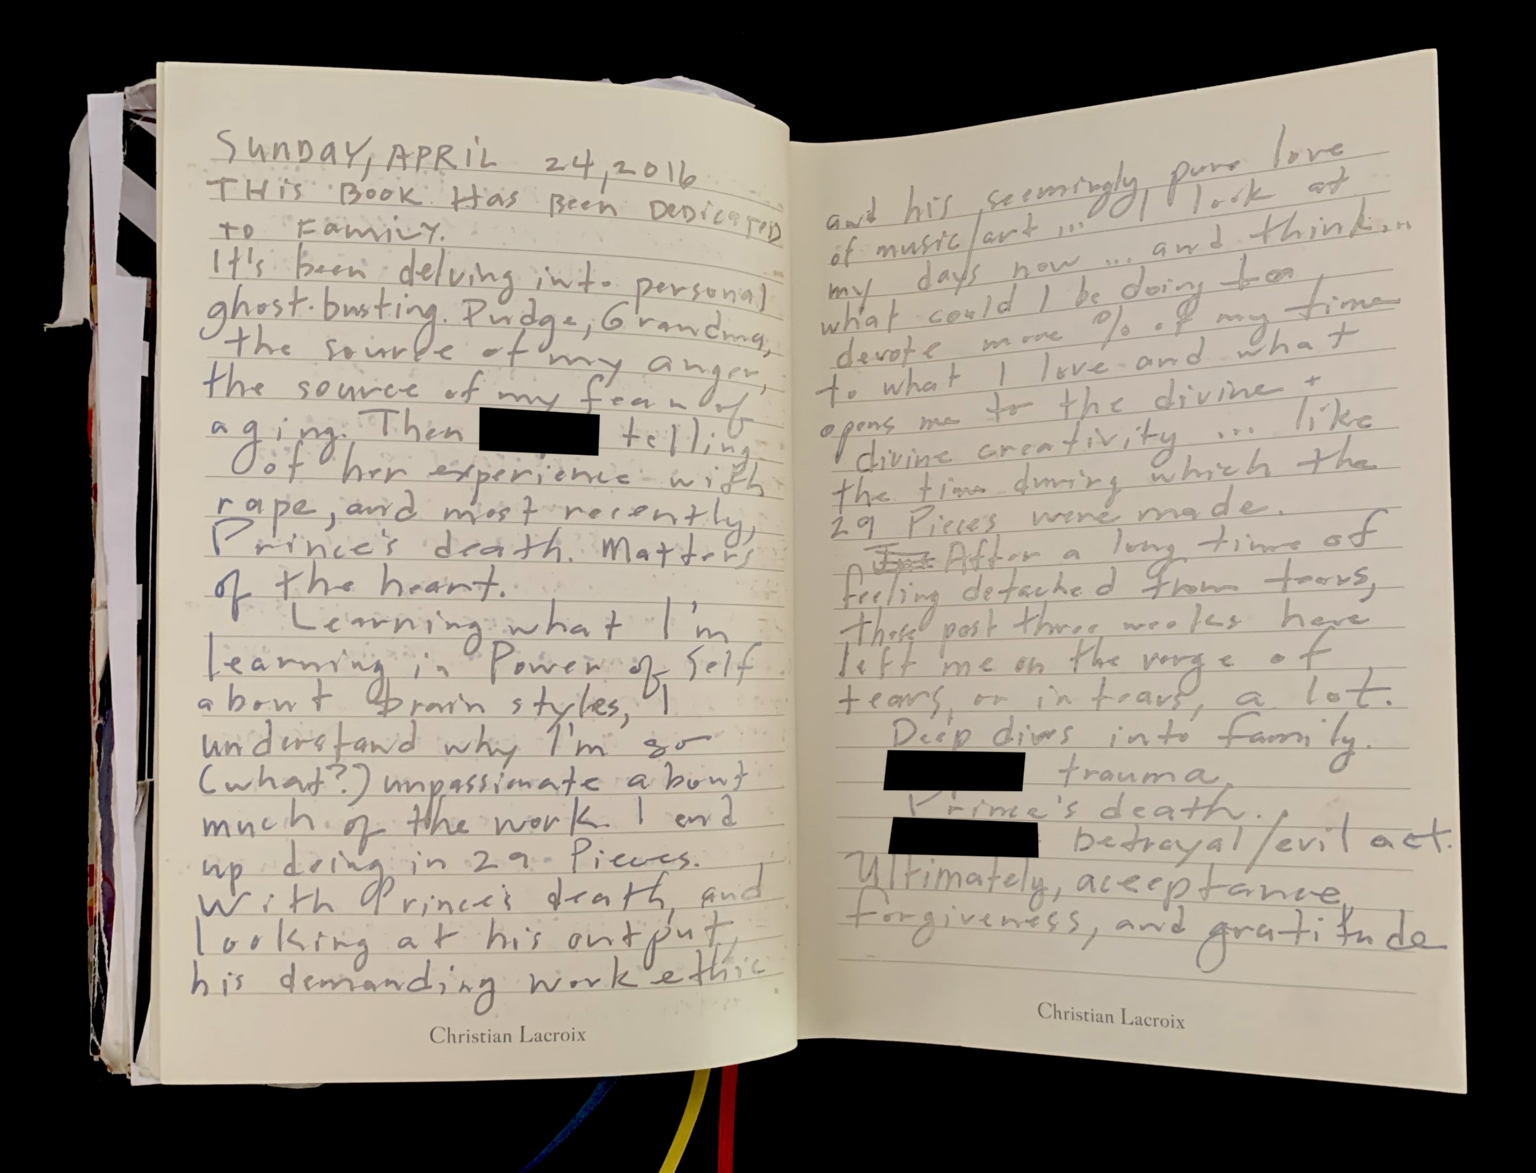 SUNDAY, APRIL 24, 2016
THIS BOOK HAS BEEN DEDICATED
TO FAMILY.
It's been delving into personal
ghost-busting. Pudge, Grandma,
the source of my anger,
the source of my fear of
aging. Then telling
of her experience with
rape, and most recently,
Prince's death. Matters
of the heart.
Learning what I'm
learning in Power of Self
about brain styles, I
understand why I'm so
(what?) unpassionate about
much of the work I end
up doing in 29 Pieces.
With Prince's death, and
looking at his output,
his demanding work ethic
Christian Lacroix
and his seemingly pure love
of music/art ... I look at
my days now ... and think..
what could I be doing to
devote more % of my time
to what I love and what
opens me to the divine +
divine creativity ... like
the time during which the
29 Pieces were made.
After a long time of
feeling detached from tears,
these past three weeks have
left me on the verge of
tears, or in tears, a lot.
Deep dives into family.
trauma,
Prince's death.
betrayal/evil act.
Ultimately, acceptance,
forgiveness, and gratitude
Christian Lacroix